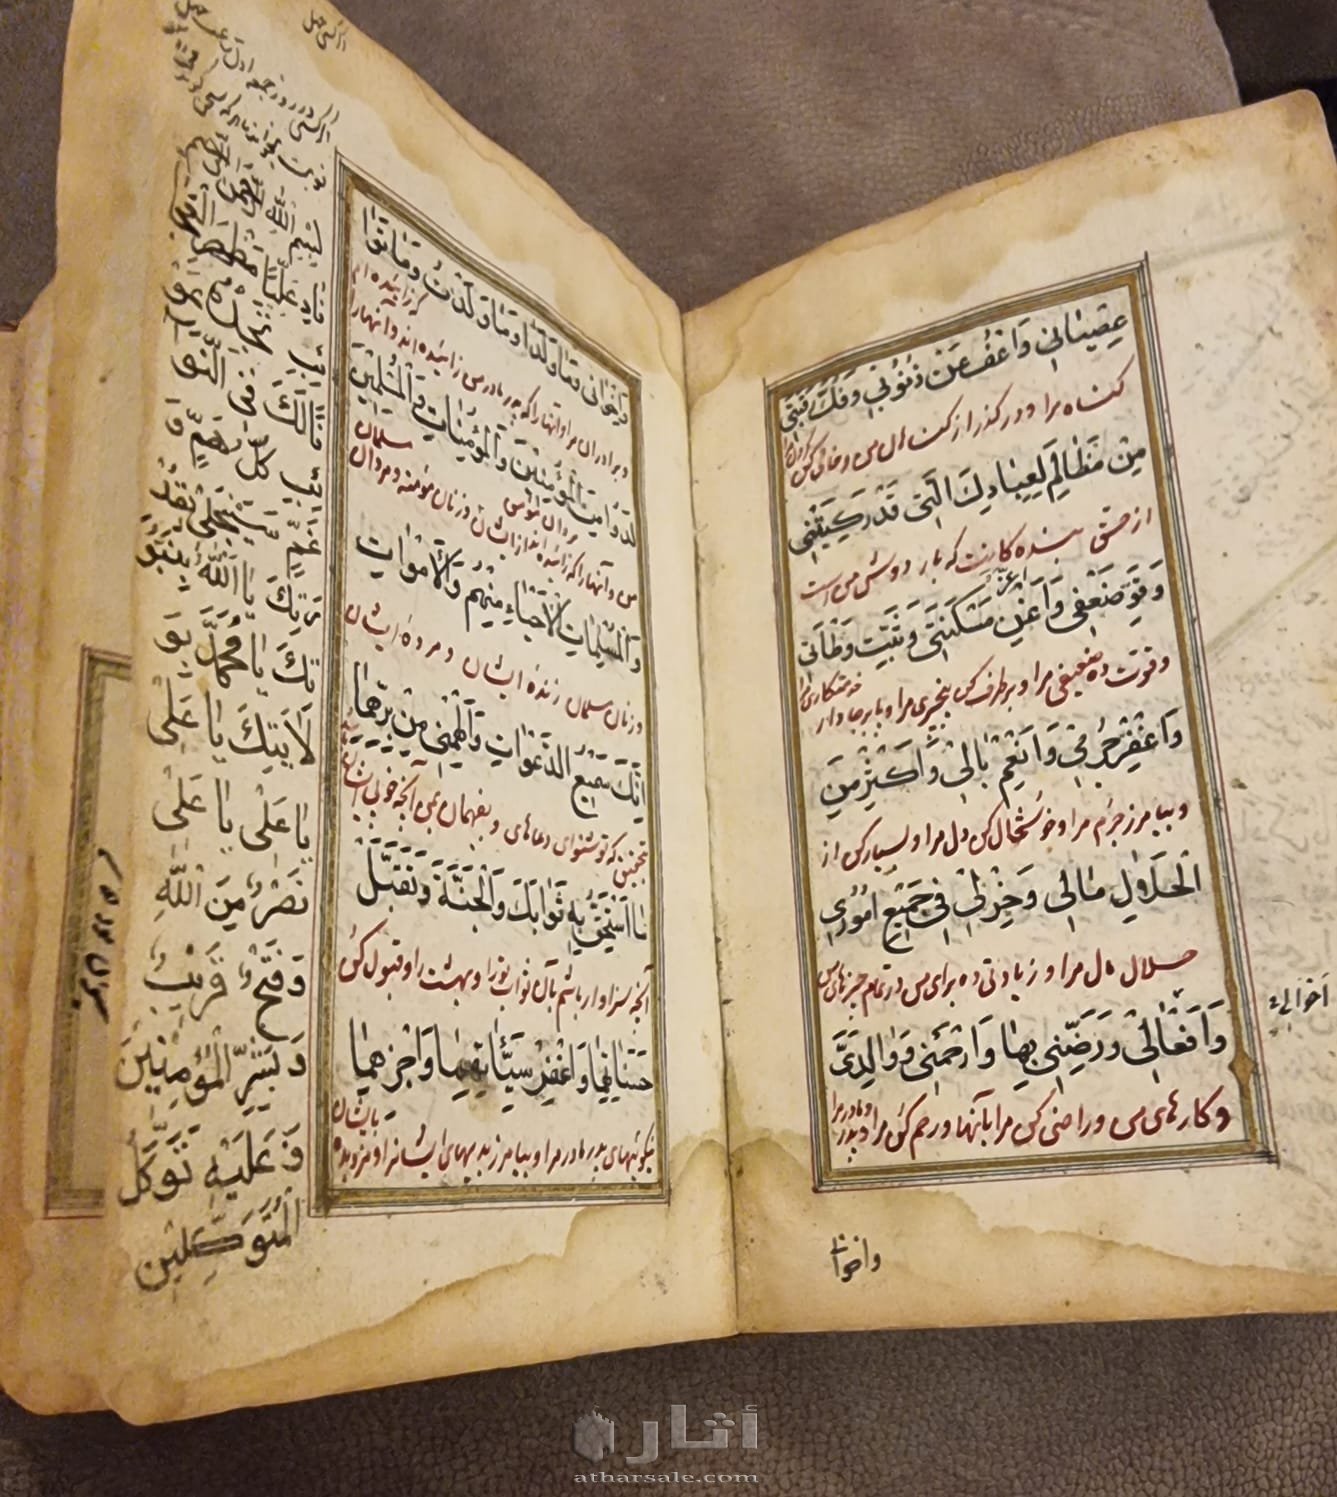 عِصْيٰانِي وَاعْفُ عَنْ ذُنُوبِي وَفُكَّ رَقَبَتِي
گناه مرا و در گذر از گناهان من و خلاص کن گردن مرا
مِنْ مَظَالِمِ لِعِبٰادِكَ الَّتِي قَدْ رَكِبَتْنِي
از حق بنده گانت که بار دوش من است
وَقَوِّ ضَعْفِي وَأَعِزَّ مَسْكَنَتِي وَثَبِّتْ وَطْأَتِي
و قوت ده ضعیفی مرا و برطرف کن
وَاغْفِرْ جُرْمِي وَانْعِمْ بٰالِي وَاَكْثِرْ مِنَ
و بیامرز جرم مرا و خوشحال کن دل مرا و بسیار کن از
الْحَلاٰلِ مٰالِي وَخِرْ لِي فِي جَمِيعِ اُمُورِي
حلال مال مرا و زیادتی ده برای من در تمام چیزهای من
وَاَفْعٰالِي وَرَضِّنِي بِهٰا وَارْحَمْنِي وَوٰالِدَيَّ
و کارهای من و راضی کن مرا بآنها و رحم کن مرا و پدر و مادر مرا
واخوا
وَاِخْوٰانِي وَمٰا وَلَدٰا وَمٰا وَلَدْتُ وَمٰا تَوٰا
و برادران مرا و آنها را که پدر مادر من زائیده اند و آنها را که زائیده ام
لَدُوا مِنَ الْمُؤْمِنِينَ وَالْمُؤْمِنٰاتِ وَالْمُسْلِمِينَ
من و آنها را که زائیده اند از ایشان و زنان مؤمنه و مردان مسلمان
وَالْمُسْلِمٰاتِ الْاَحْيٰاءِ مِنْهُمْ وَالْاَمْوٰاتِ
و زنان مسلمان زنده ایشان و مرده ایشان
اِنَّكَ سَمِيعُ الدَّعَوٰاتِ وَاَلْهِمْنِي مِنْ بِرِّهِمٰا
بتحقیق که تو شنوای دعاهای و بفهمان بمن آنچه خوبی
مٰا اَسْتَحِقُّ بِهِ ثَوٰابَكَ وَالْجَنَّةَ وَتَقَبَّلْ
آنچه سزاوار باشم بآن ثواب تو را و بهشت را و قبول کن
حَسَنٰاتِهِمٰا وَاغْفِرْ سَيِّئٰاتِهِمٰا وَاجْزِهِمٰا
نیکوئیهای پدر مادر مرا و بیامرز بدیهای ایشانرا و مزد بده بایشان
بِسْمِ اللّٰهِ الرَّحْمٰنِ الرَّحِيمِ
نٰادِ عَلِيًّا مَظْهَرَ الْعَجٰا
ئِبِ تَجِدْهُ عَوْ
نًا لَكَ فِي النَّوٰا
ئِبِ كُلُّ هَمٍّ وَ
غَمٍّ سَيَنْجَلِي
يَا اَللّٰهُ بِنُبُوَّ
تِكَ يٰا مُحَمَّدُ بِوَ
لاٰيَتِكَ يٰا عَلِي
يٰا عَلِي يٰا عَلِي
نَصْرٌ مِنَ اللّٰهِ
وَفَتْحٌ قَرِيبٌ
وَبَشِّرِ الْمُؤْمِنِينَ
وَعَلَيْهِ تَوَكَّلُ
الْمُتَوَكِّلِينَ
أثاره
atharsale.com